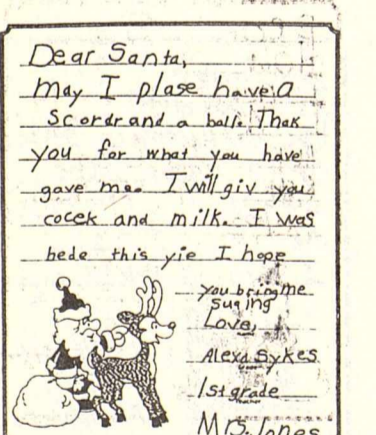 Dear Santa,
May I plase have a
Scordr and a ball. Thak
you for what you have
gave me. I will giv you
cocek and milk. I was
hede this yie I hope
you bring me
suging
Love,
Alexa Sykes
1st grade
Mrs. Jones